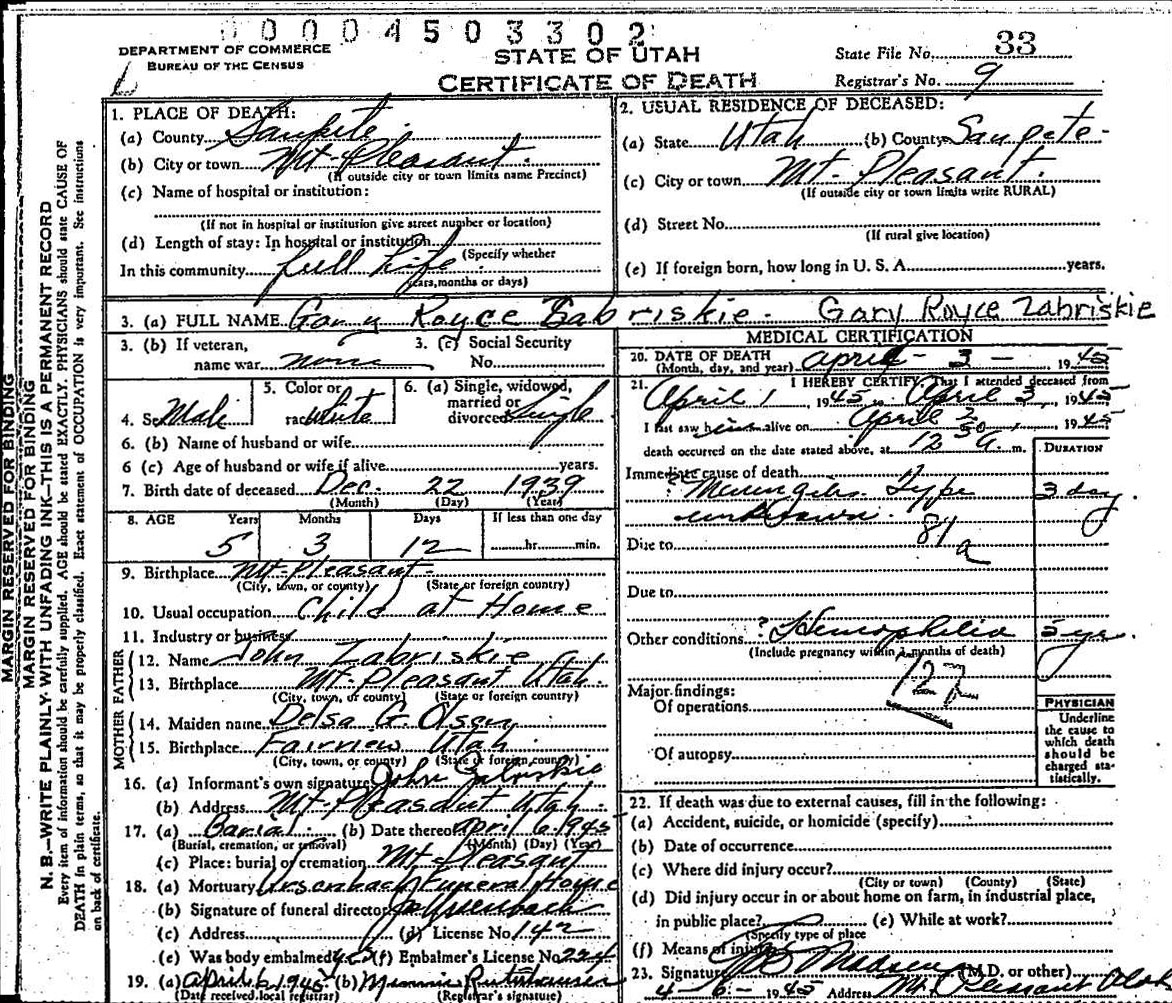 0 0 0 4 5 0 3 3 0 2
DEPARTMENT OF COMMERCE
BUREAU OF THE CENSUS
STATE OF UTAH
CERTIFICATE OF DEATH
State File No. 33
Registrar's No. 9
MARGIN RESERVED FOR BINDING
MARGIN RESERVED FOR BINDING
N. B.—WRITE PLAINLY WITH UNFADING INK—THIS IS A PERMANENT RECORD
Every item of information should be carefully supplied. AGE should be stated EXACTLY. PHYSICIANS should state CAUSE OF
DEATH in plain terms, so that it may be properly classified. Exact statement of OCCUPATION is very important. See instructions
on back of certificate.
1. PLACE OF DEATH:
(a) County Sanpete
(b) City or town Mt. Pleasant.
(If outside city or town limits name Precinct)
(c) Name of hospital or institution:
(If not in hospital or institution give street number or location)
(d) Length of stay: In hospital or institution
(Specify whether
In this community full life
years, months or days)
2. USUAL RESIDENCE OF DECEASED:
(a) State Utah (b) County Sanpete
(c) City or town Mt. Pleasant.
(If outside city or town limits write RURAL)
(d) Street No.
(If rural give location)
(e) If foreign born, how long in U. S. A. years.
3. (a) FULL NAME Gary Royce Zabriskie. Gary Royce Zabriskie
3. (b) If veteran, name war none
3. (c) Social Security No.
4. Sex Male
5. Color or race White
6. (a) Single, widowed, married or divorced Single
6. (b) Name of husband or wife
6 (c) Age of husband or wife if alive years.
7. Birth date of deceased Dec. 22 1939
(Month) (Day) (Year)
8. AGE Years Months Days If less than one day
5 3 12 hr. min.
9. Birthplace Mt. Pleasant
(City, town, or county) (State or foreign country)
10. Usual occupation Child at Home
11. Industry or business
FATHER
12. Name John Zabriskie
13. Birthplace Mt. Pleasant Utah.
(City, town, or county) (State or foreign country)
MOTHER
14. Maiden name Delsa G. Olsen
15. Birthplace Fairview Utah.
(City, town, or county) (State or foreign country)
16. (a) Informant's own signature John Zabriskie
(b) Address Mt. Pleasant Utah.
17. (a) Burial (b) Date thereof April 6 1945
(Burial, cremation, or removal) (Month) (Day) (Year)
(c) Place: burial or cremation Mt. Pleasant
18. (a) Mortuary Ursenbach Funeral Home
(b) Signature of funeral director Ursenbach
(c) Address (d) License No. 142
(e) Was body embalmed yes (f) Embalmer's License No. 224
19. (a) April 6 1945 (b) Minnie
(Date received local registrar) (Registrar's signature)
MEDICAL CERTIFICATION
20. DATE OF DEATH April - 3 - 1945
(Month, day, and year)
21. I HEREBY CERTIFY, That I attended deceased from
April 1 1945 to April 3, 1945
I last saw him alive on April 2 1945
death occurred on the date stated above, at 12 50 a. m.
DURATION
Immediate cause of death
? Meningitis. Type 3 day.
unknown.
81a
Due to
Due to
Other conditions ? Hemophilia 5 yr.
(Include pregnancy within 3 months of death)
127
Major findings:
Of operations
Of autopsy
PHYSICIAN
Underline
the cause to
which death
should be
charged sta-
tistically.
22. If death was due to external causes, fill in the following:
(a) Accident, suicide, or homicide (specify)
(b) Date of occurrence
(c) Where did injury occur?
(City or town) (County) (State)
(d) Did injury occur in or about home on farm, in industrial place,
in public place? (e) While at work?
(Specify type of place
(f) Means of injury
23. Signature Madsen (M.D. or other)
4 - 6 - 1945 Address Mt. Pleasant Utah